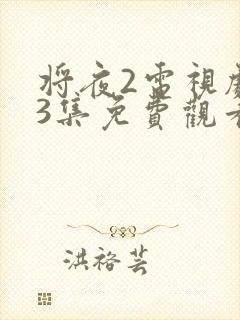 將夜2電視
3集免費觀
洪裕芸